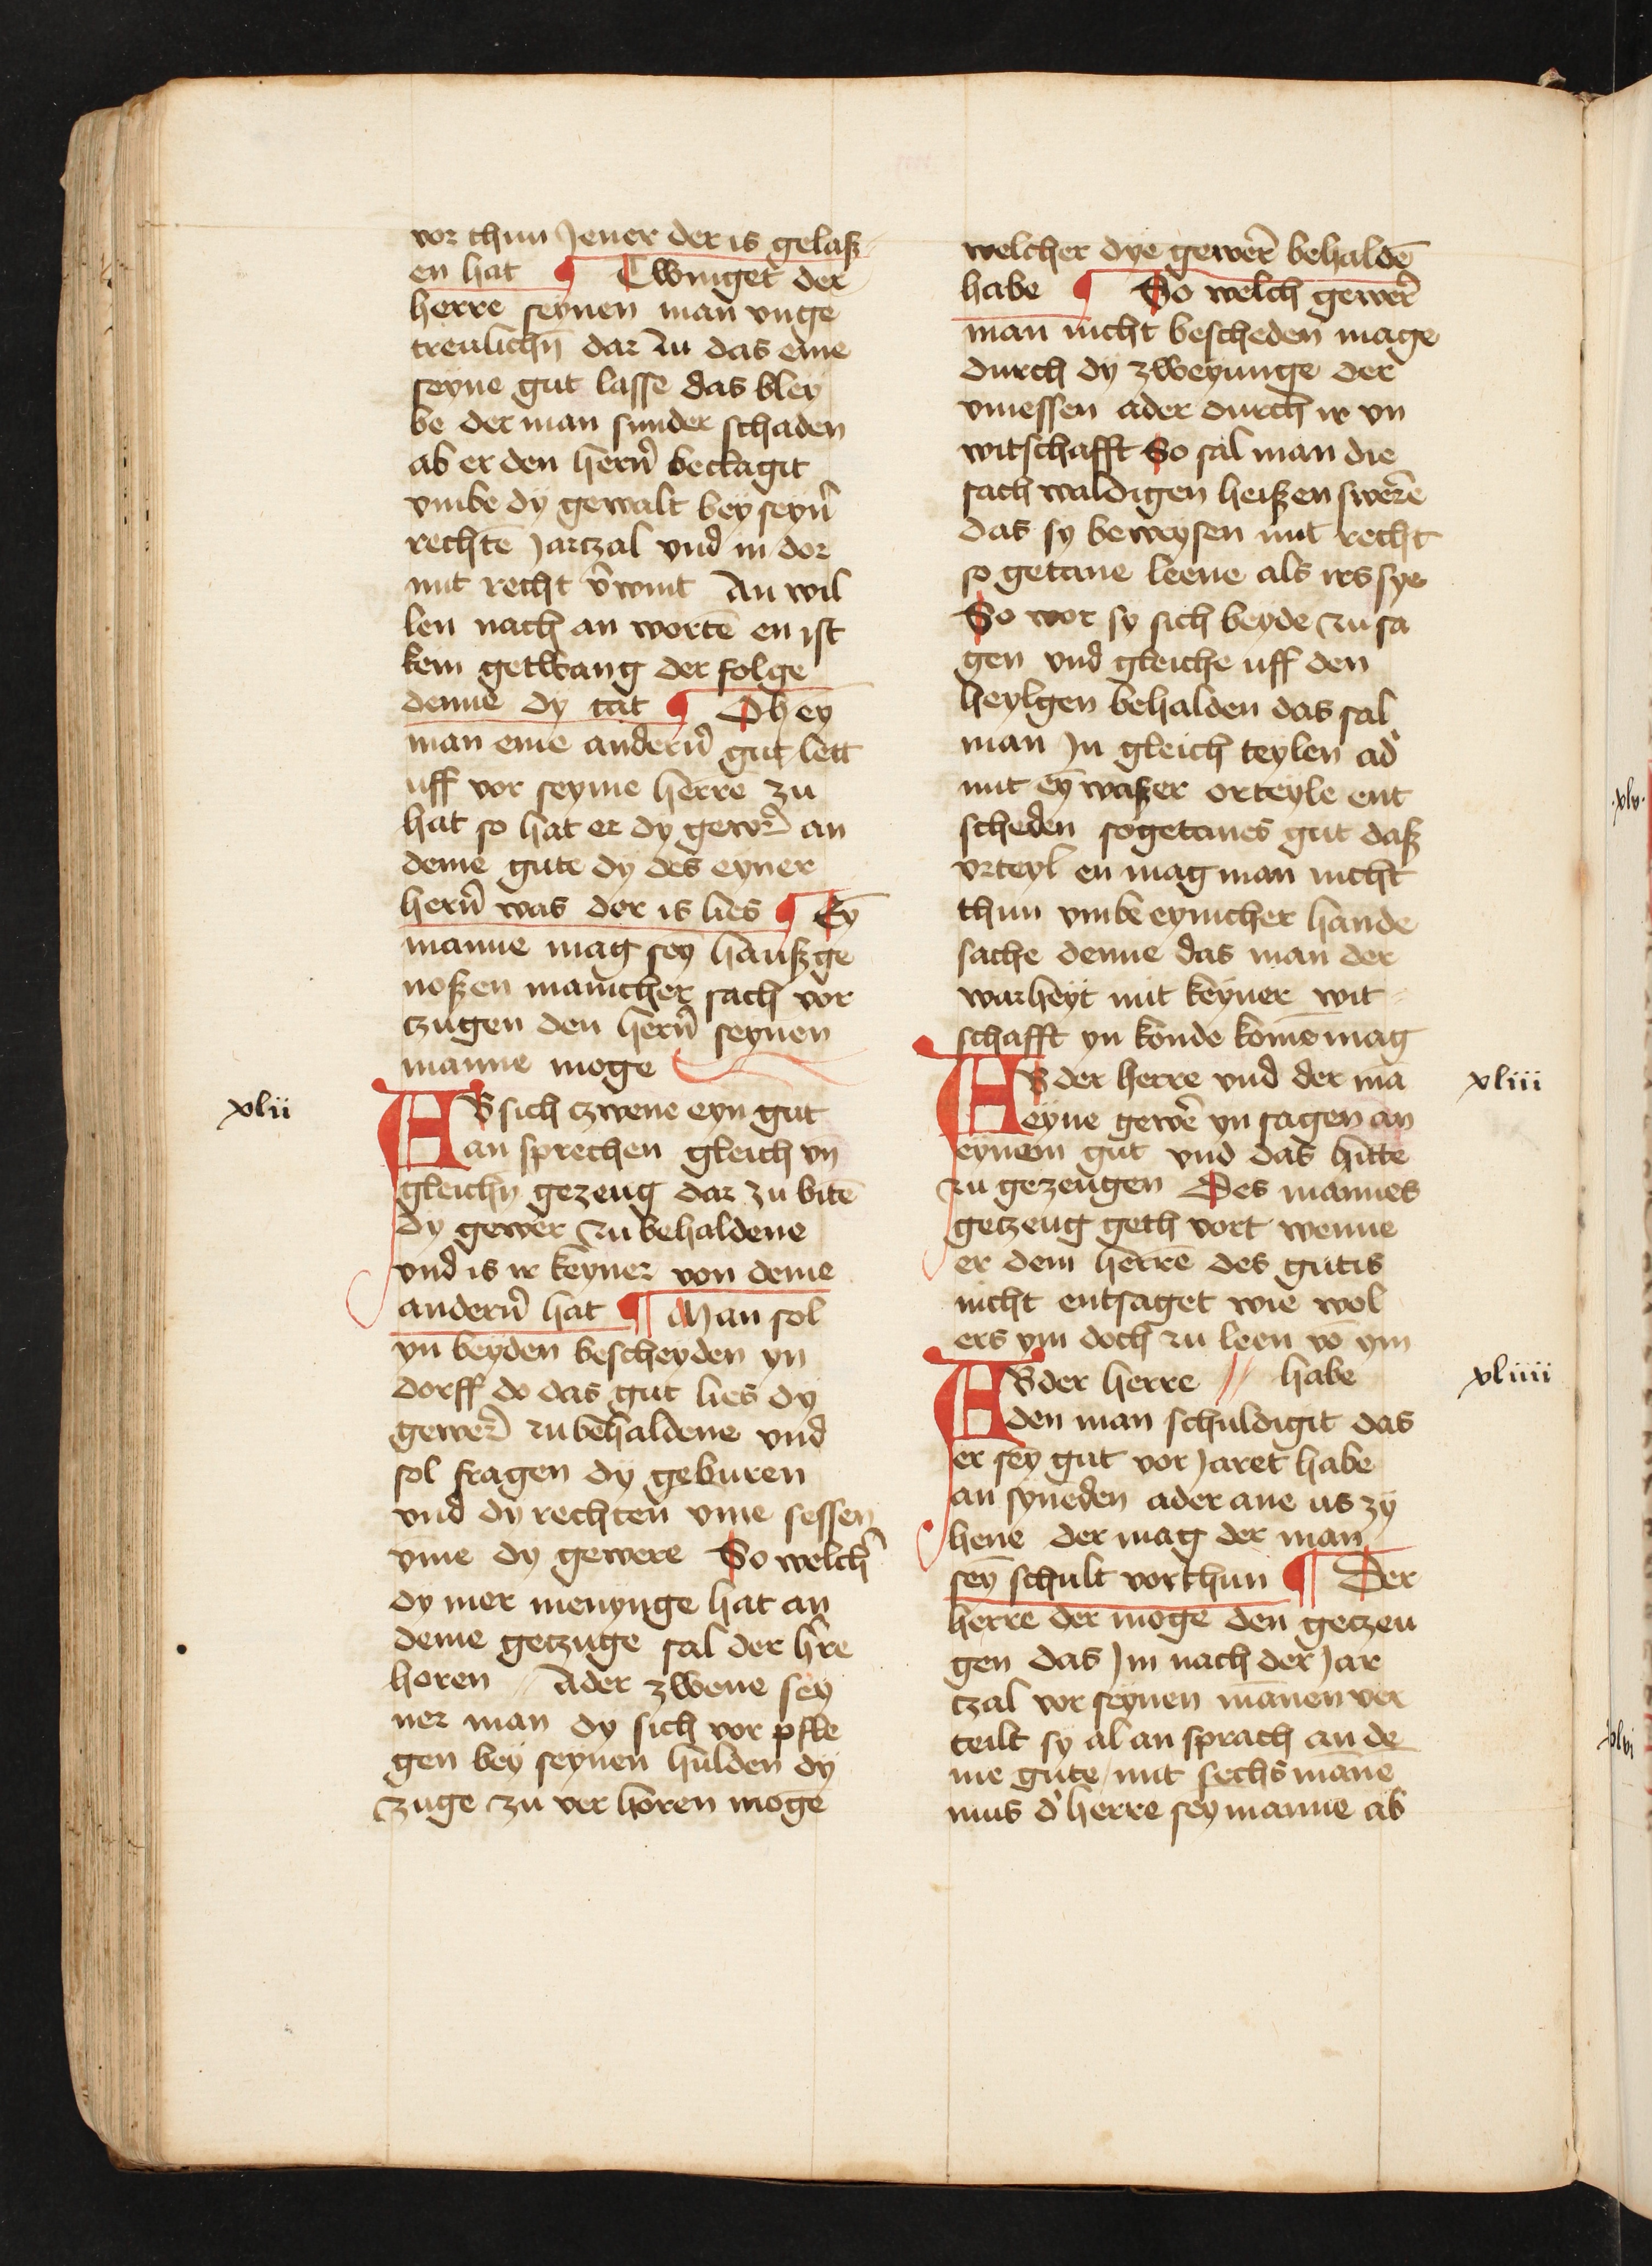 vor thun Jener der is gelasz
en hat ¶ Twinget der
herre seynen man vnge
treulichn̄ dar zu das eme
seyne gut lasse das bley
be der man sunder schaden
ab er den hern̄ beclagit
vmbe dÿ gewalt bey seyn̄
rechtē Jarczal vnd in dor
mit recht v̄wint An wil
len nach an wortē en ist
kein getwang der folge
denne dy tat ¶ Ob ey
man eme andern̄ gut lett
uff vor seyme herre zu
hat so hat er dy gewer̄ an
deme gute dy des eyner
hern̄ was der is lies ¶ Eȳ
manne mag sey hauszge
noszen mancher sach vor
czugen den hern̄ seynen
manne moge
xlii
AB sich czwene eyn gut
an sprechen gleich vn
gleichn̄ gezeug dar zu bitē
dy gewer zu behaldene
vnd is ir keyner von deme
andern̄ hat ¶ Man sol
yn beyden bescheyden yn
dorff do das gut lies dy
gewer̄ zu behaldene vnd
sol fragen dy geburen
vnd dy rechten vme sessen
vme dy gewere So welch̄
dy mer menynge hat an
deme geczuge sal der h̄re
horen Ader zwene sey
ner man dy sich vor pfle
gen bey seynen hulden dy
zuge zu ver horen moge
welcher dye gewer̄ behaldē
habe ¶ So welch gewer̄
man nicht bescheden mage
durch dy zweyunge der
vmessen ader durch ir vn
witschafft So sal man die
sach waldigen heiszen swerē
das sy beweysen mit recht
so getane leene als irs sye
So wor sy sich beyde zu sa
gen vnd gleiche uff den
heylgen behalden das sal
man Jn gleich teylen ad̄
mit eȳ waszer orteyle ent
scheden sogetanes gut dasz
vrteyl en mag man nicht
thun vmbe eynicher hande
sache denne das man der
warheyt mit keyner wit
schafft yn konde komē mag
xliii
AB der herre vnd der ma
eyne gewer̄ yn sagen an
eynem gut vnd das hitte
zu gezeugen Des mannes
geczeug geth vort wenne
er dem herrē des gutis
nicht entsaget wie wol
ers ym doch zu leen vō ym
xliiii
AB der herre // habe
den man schuldigit das
er sey gut vor Jaret habe
an syneden ader ane us zy
hene der mag der man
seȳ schult vorthun ¶ Der
herre der moge den geczeu
gen das Jm nach der Jar
czal vor seynen mānen ver
teilt sy al an sprach an de
me gute / mit sechs māne
mus d̄ herre sey manne ab
·xlv·
xlvi